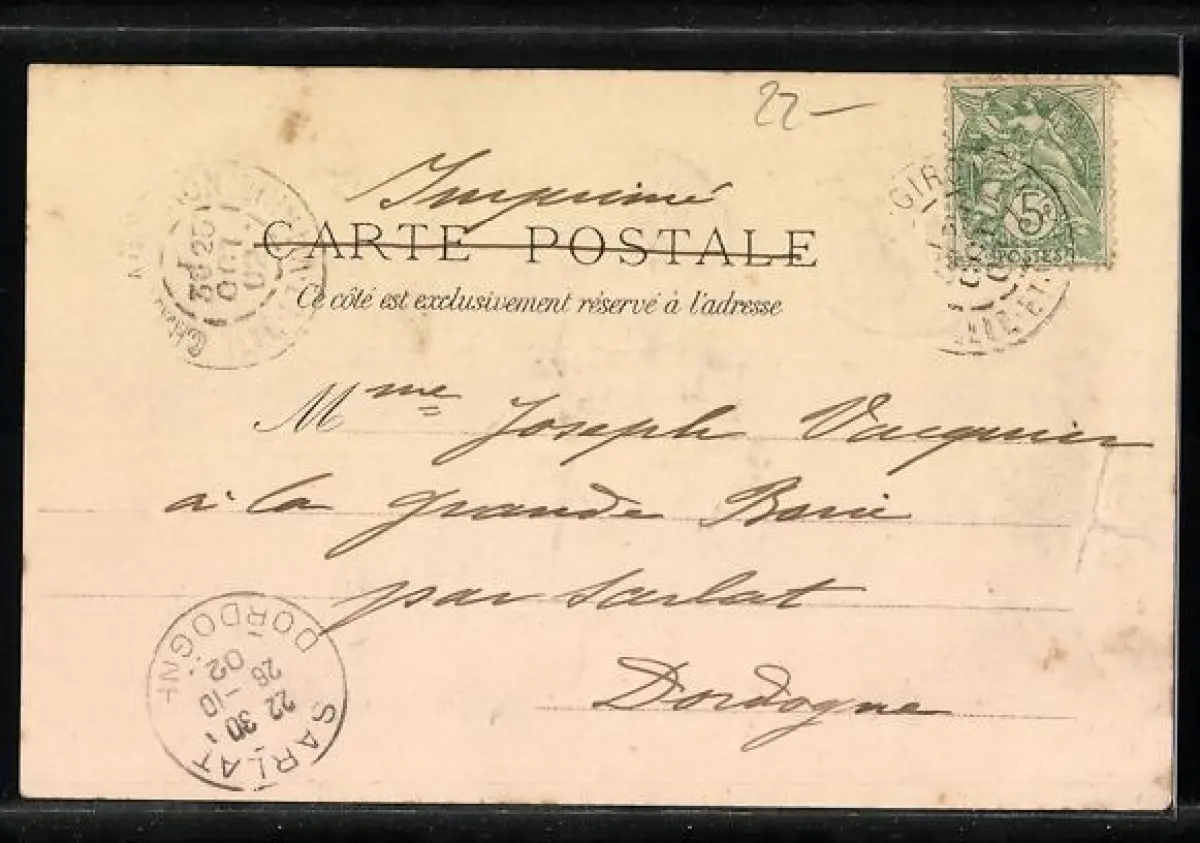 22 –
Imprimé
CARTE POSTALE
Ce côté est exclusivement réservé à l'adresse
5c
POSTES
25
OCT
02
Mme Joseph Vacquier
à la grande Borie
par Sarlat
Dordogne
SARLAT
22 30
26 -10
02
DORDOGNE